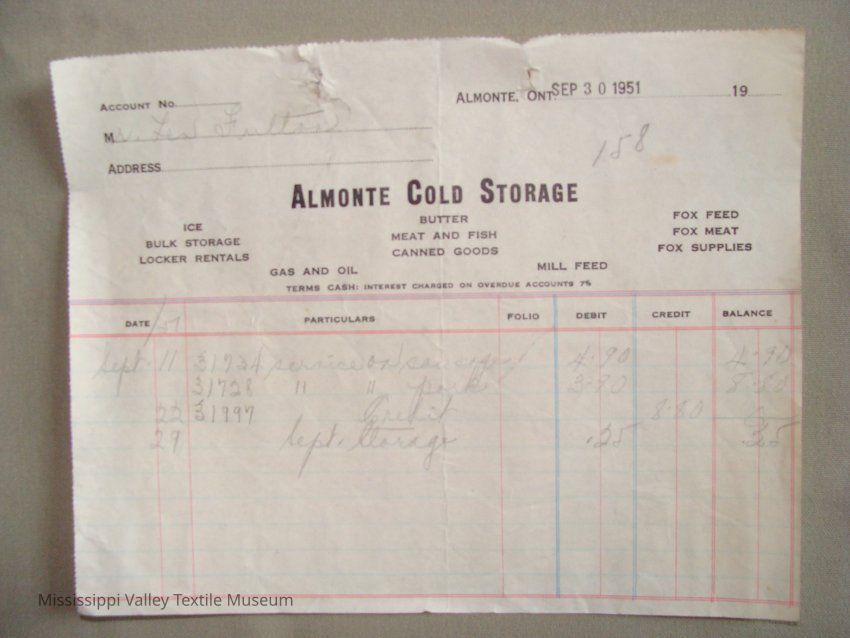 ACCOUNT No.
ALMONTE, ONT. SEP 30 1951 19
Mr. Les Fulton
158
ADDRESS
ALMONTE COLD STORAGE
ICE
BULK STORAGE
LOCKER RENTALS
BUTTER
MEAT AND FISH
CANNED GOODS
FOX FEED
FOX MEAT
FOX SUPPLIES
GAS AND OIL MILL FEED
TERMS CASH: INTEREST CHARGED ON OVERDUE ACCOUNTS 7%
DATE PARTICULARS FOLIO DEBIT CREDIT BALANCE
Sept. 11 31724 service on sausage 4.90 4.90
31728 " " pork 3.90 8.80
22 31997 Credit 8.80 0
29 Sept. Storage .25
Mississippi Valley Textile Museum